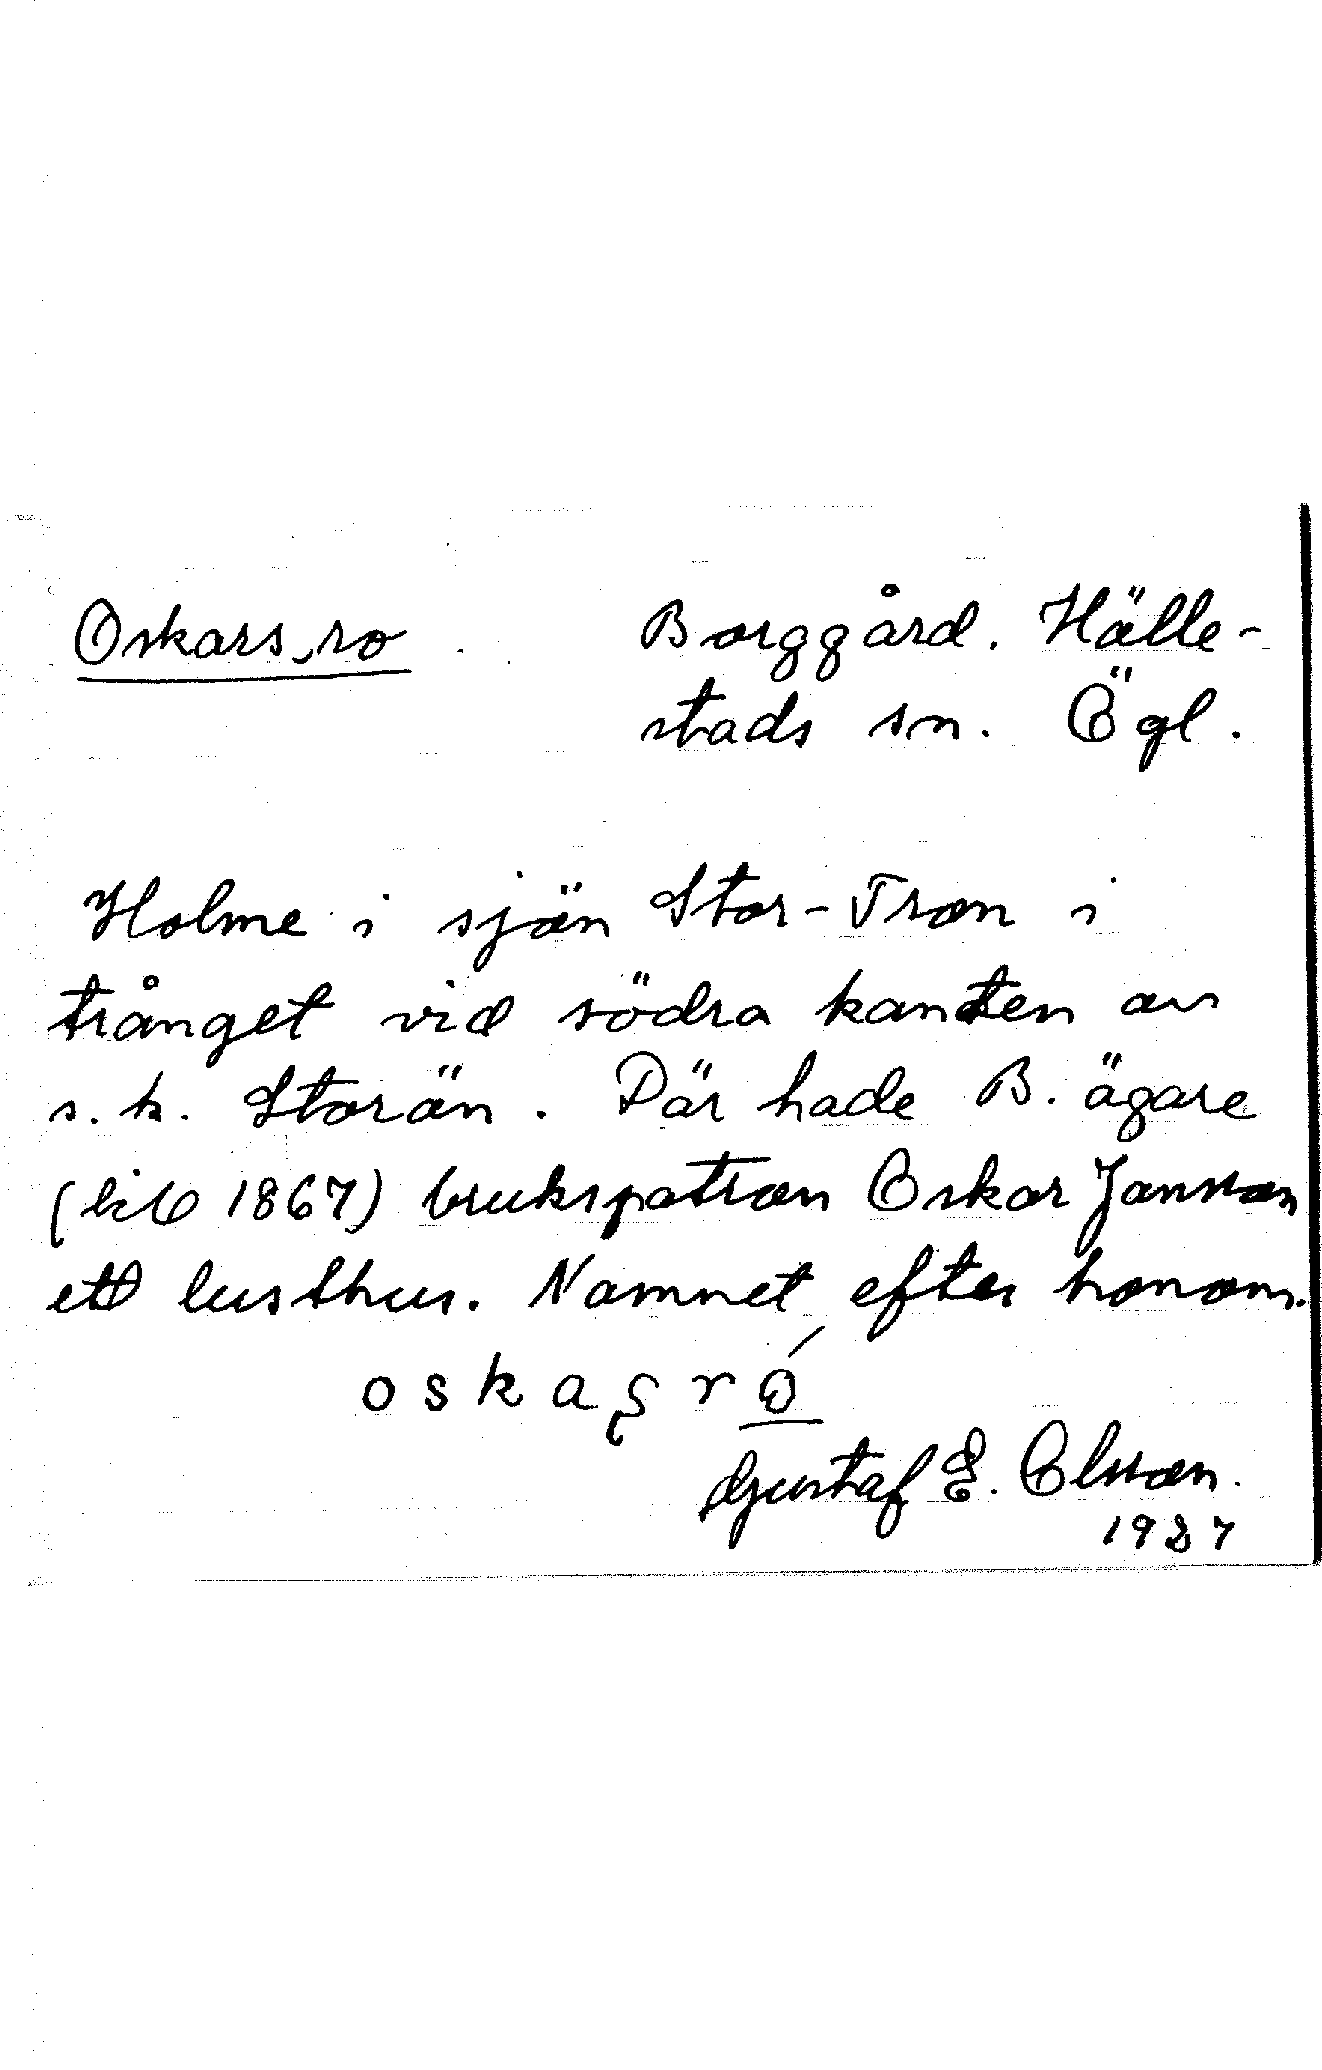 Oskars-ro Borggård. Hälle-
stads sn. Ögl.
Holme i sjön Stor-Tron i
trånget vid södra kanten av
s. k. Storön. Där hade B. ägare
(till 1867) brukspatron Oskar Jansson
ett lusthus. Namnet efter honom.
oskaʂró
Gustaf E. Olsson.
1937